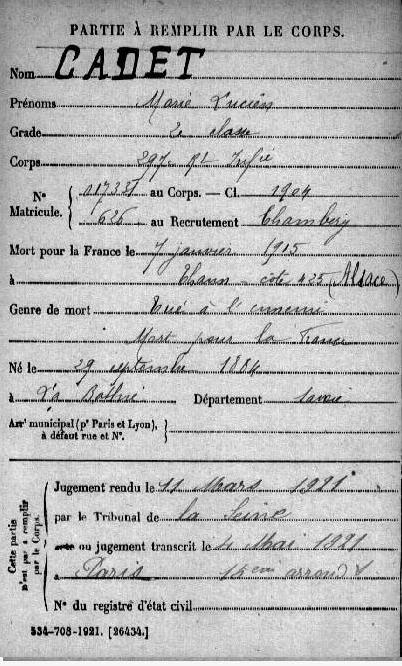 PARTIE À REMPLIR PAR LE CORPS.
Nom CADET
Prénoms Marie Lucien
Grade 2e classe
Corps 297 Rt Infie
N° Matricule. { 017331 au Corps. — Cl. 1904
626 au Recrutement Chambéry
Mort pour la France le 7 janvier 1915
à Thann - côte 425 (Alsace)
Genre de mort Tué à l'ennemi
Mort pour la France
Né le 29 septembre 1884
à La Bâthie Département Savoie
Arrt municipal (pr Paris et Lyon), à défaut rue et N°. }
Cette partie n'est pas à remplir par le Corps.
Jugement rendu le 11 Mars 1921
par le Tribunal de la Seine
acte ou jugement transcrit le 4 Mai 1921
à Paris arrondt
N° du registre d'état civil
534-708-1921. [26434.]